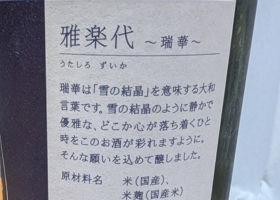 雅楽代 ～瑞華～
うたしろ ずいか
瑞華は「雪の結晶」を意味する大和
言葉です。雪の結晶のように静かで
優雅な、どこか心が落ち着くひと
時をこのお酒が彩れますように。
そんな願いを込めて醸しました。
原材料名 米(国産)、
米麹(国産米)